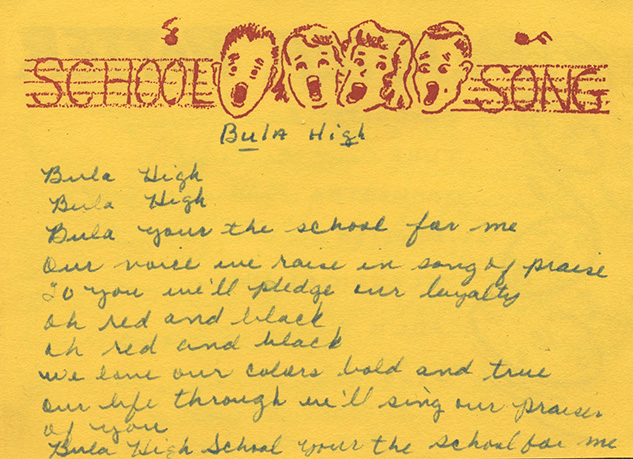 SCHOOL SONG
Bula High
Bula High
Bula High
Bula your the school for me
Our voice we raise in song of praise
To you we'll pledge our loyalty
oh red and black
oh red and black
we love our colors bold and true
our life through we'll sing our praises
of you
Bula High School your the school for me